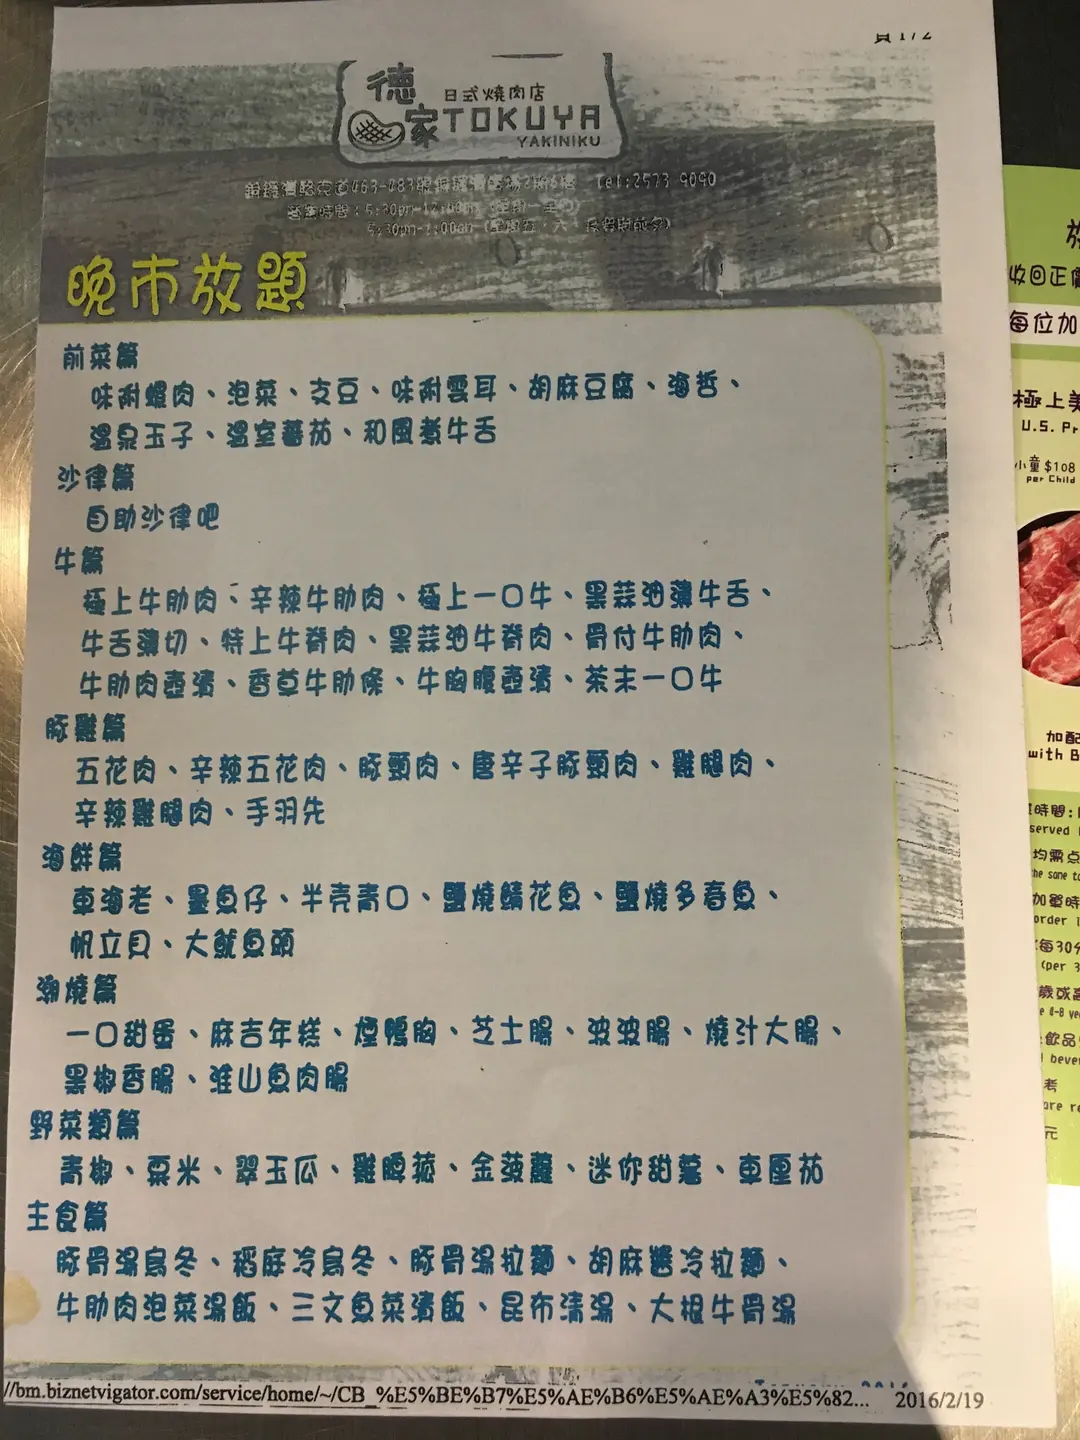 頁 1/2
德家
日式燒肉店
TOKUYA
YAKINIKU
銅鑼灣駱克道463-483號銅鑼灣廣場2期6樓 Tel:2573 9090
營業時間:5:30pm-12:00am
5:30pm-1:00am
晚市放題
前菜篇
味附螺肉、泡菜、支豆、味附雲耳、胡麻豆腐、海哲、
溫泉玉子、溫室蕃茄、和風煮牛舌
沙律篇
自助沙律吧
牛篇
極上牛肋肉、辛辣牛肋肉、極上一口牛、黑蒜油薄牛舌、
牛舌薄切、特上牛脊肉、黑蒜油牛脊肉、骨付牛肋肉、
牛肋肉壺漬、香草牛肋條、牛胸腹壺漬、茶末一口牛
豚雞篇
五花肉、辛辣五花肉、豚頸肉、唐辛子豚頸肉、雞腿肉、
辛辣雞腿肉、手羽先
海鮮篇
車海老、墨魚仔、半壳青口、鹽燒鯖花魚、鹽燒多春魚、
帆立貝、大魷魚頭
潮燒篇
一口甜蛋、麻吉年糕、煙鴨胸、芝士腸、波波腸、燒汁大腸、
黑椒香腸、淮山魚肉腸
野菜類篇
青椒、粟米、翠玉瓜、雞脾菇、金菠蘿、迷你甜薯、車厘茄
主食篇
豚骨湯烏冬、稻庭冷烏冬、豚骨湯拉麵、胡麻醬冷拉麵、
牛肋肉泡菜湯飯、三文魚菜漬飯、昆布清湯、大根牛骨湯
//bm.biznetvigator.com/service/home/~/CB_%E5%BE%B7%E5%AE%B6%E5%AE%A3%E5%82... 2016/2/19
收回正價
每位加
極上美
U.S. Pr
小童 $108
per Child
加配
with B
時間:
served
均需点
the same to
加單時
order
每30分
(per 3
歲或
飲品
beve
考
are re
元